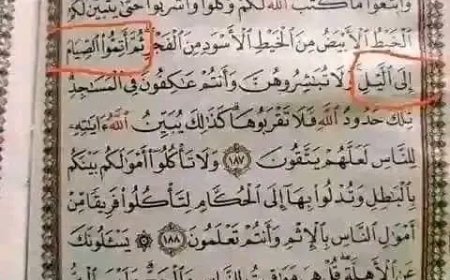 وَٱبْتَغُوا۟ مَا كَتَبَ ٱللَّهُ لَكُمْ وَكُلُوا۟ وَٱشْرَبُوا۟ حَتَّىٰ يَتَبَيَّنَ لَكُمُ
ٱلْخَيْطُ ٱلْأَبْيَضُ مِنَ ٱلْخَيْطِ ٱلْأَسْوَدِ مِنَ ٱلْفَجْرِ ثُمَّ أَتِمُّوا۟ ٱلصِّيَامَ
إِلَى ٱلَّيْلِ وَلَا تُبَٰشِرُوهُنَّ وَأَنتُمْ عَٰكِفُونَ فِى ٱلْمَسَٰجِدِ
تِلْكَ حُدُودُ ٱللَّهِ فَلَا تَقْرَبُوهَا كَذَٰلِكَ يُبَيِّنُ ٱللَّهُ ءَايَٰتِهِۦ
لِلنَّاسِ لَعَلَّهُمْ يَتَّقُونَ ١٨٧ وَلَا تَأْكُلُوٓا۟ أَمْوَٰلَكُم بَيْنَكُم
بِٱلْبَٰطِلِ وَتُدْلُوا۟ بِهَآ إِلَى ٱلْحُكَّامِ لِتَأْكُلُوا۟ فَرِيقًا مِّنْ
أَمْوَٰلِ ٱلنَّاسِ بِٱلْإِثْمِ وَأَنتُمْ تَعْلَمُونَ ١٨٨ يَسْـَٔلُونَكَ
عَنِ ٱلْأَهِلَّةِ قُلْ هِىَ مَوَٰقِيتُ لِلنَّاسِ وَٱلْحَجِّ وَلَيْسَ ٱلْبِرُّ